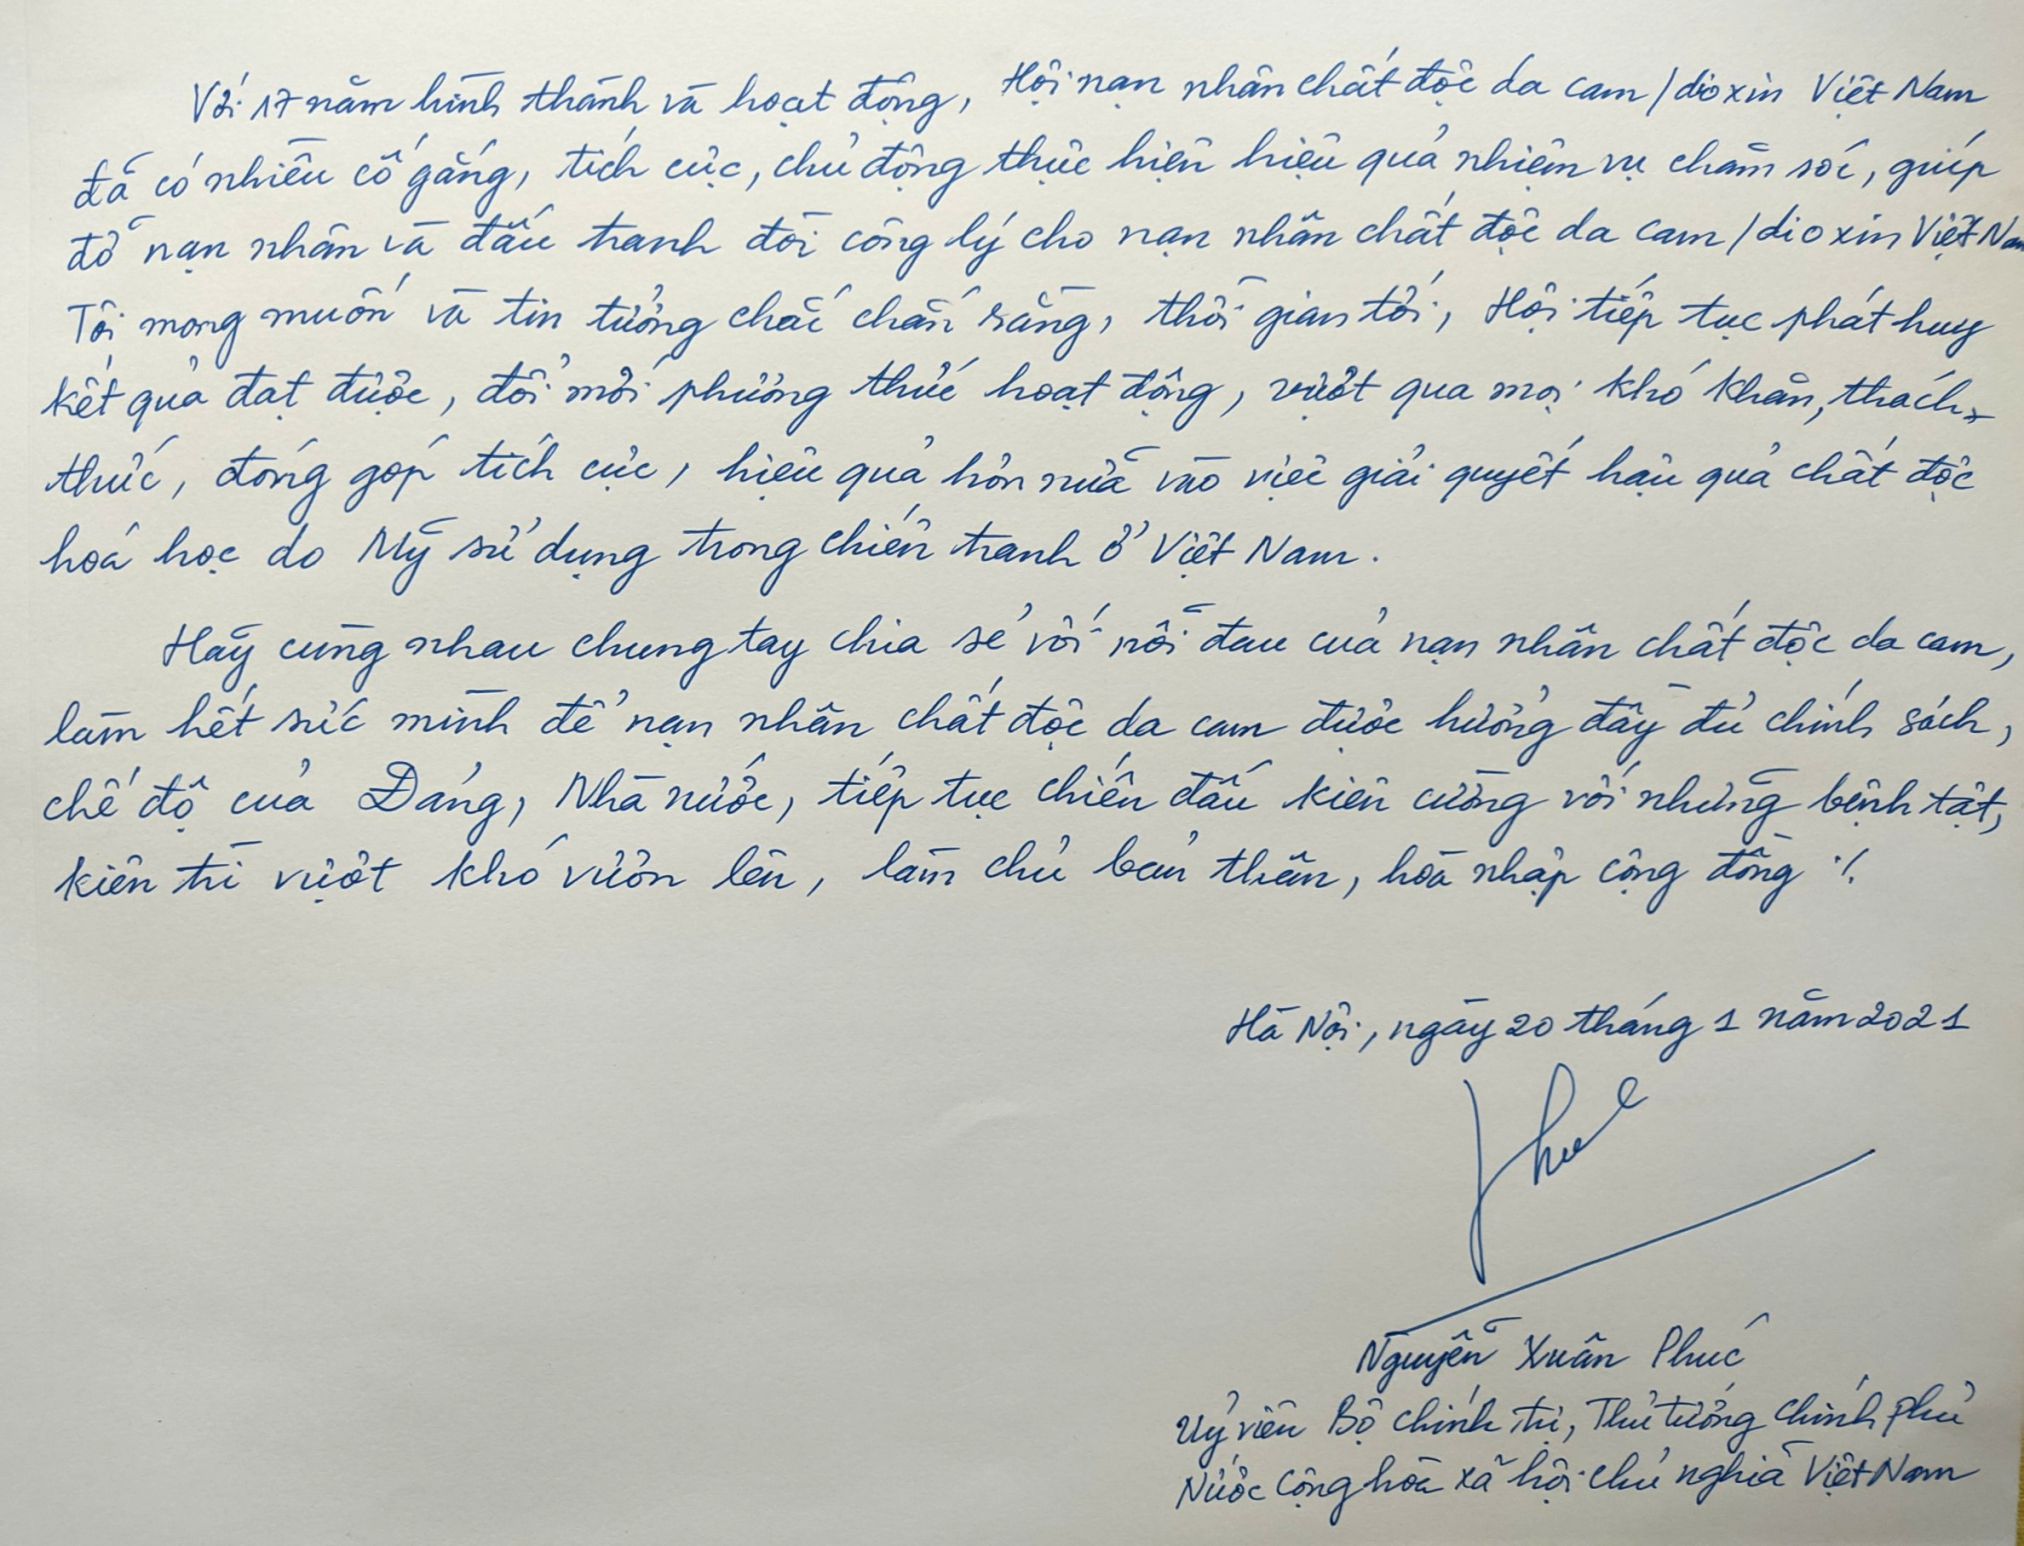 Với 17 năm hình thành và hoạt động, Hội nạn nhân chất độc da cam/dioxin Việt Nam
đã có nhiều cố gắng, tích cực, chủ động thực hiện hiệu quả nhiệm vụ chăm sóc, giúp
đỡ nạn nhân và đấu tranh đòi công lý cho nạn nhân chất độc da cam/dioxin Việt Nam
Tôi mong muốn và tin tưởng chắc chắn rằng, thời gian tới, Hội tiếp tục phát huy
kết quả đạt được, đổi mới phương thức hoạt động, vượt qua mọi khó khăn, thách
thức, đóng góp tích cực, hiệu quả hơn nữa vào việc giải quyết hậu quả chất độc
hoá học do Mỹ sử dụng trong chiến tranh ở Việt Nam.
Hãy cùng nhau chung tay chia sẻ với nỗi đau của nạn nhân chất độc da cam,
làm hết sức mình để nạn nhân chất độc da cam được hưởng đầy đủ chính sách,
chế độ của Đảng, Nhà nước, tiếp tục chiến đấu kiên cường với những bệnh tật,
kiên trì vượt khó vươn lên, làm chủ bản thân, hòa nhập cộng đồng ./.
Hà Nội, ngày 20 tháng 1 năm 2021
Phuc
Nguyễn Xuân Phúc
Uỷ viên Bộ chính trị, Thủ tướng Chính phủ
Nước Cộng hòa xã hội chủ nghĩa Việt Nam